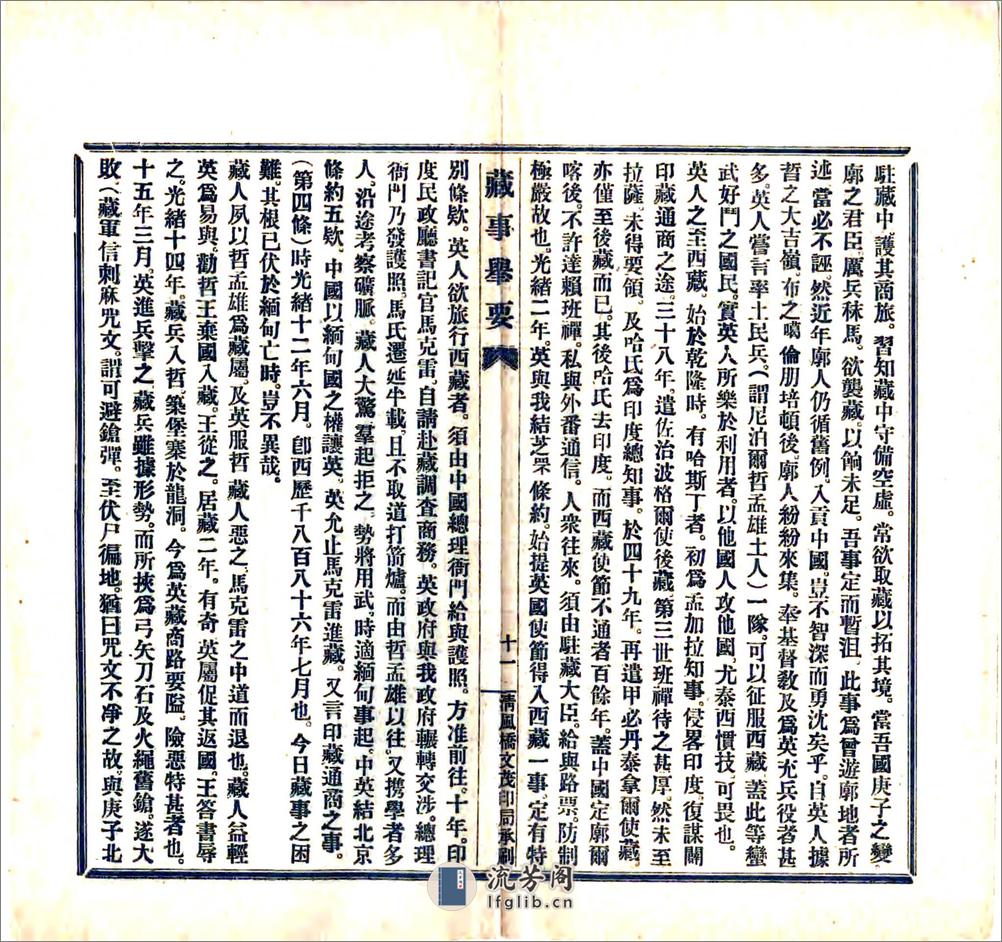 駐藏中、護其商旅。習知藏中守備空虛。常欲取藏以拓其境。當吾國庚子之變
廓之君臣、厲兵秣馬。欲襲藏。以餉未足。吾事定而暫沮。此事爲曾遊廓地者所
述。當必不誣。然近年廓人仍循舊例。入貢中國。豈不智深而勇沈矣乎。自英人據
哲之大吉嶺。布之噶倫朋培頓後。廓人紛紛來集。奉基督敎及爲英尤兵役者甚
多。英人嘗言率土民兵。(謂尼泊爾哲孟雄土人)一隊。可以征服西藏。蓋此等蠻
武好鬥之國民。實英人所樂於利用者。以他國人攻他國。尤泰西慣技。可畏也。
英人之至西藏。始於乾隆時。有哈斯丁者。初爲孟加拉知事。侵畧印度。復謀闢
印藏通商之途。三十八年。遣佐治波格爾使後藏。第三世班禪待之甚厚。然未至
拉薩。未得要領。及哈氏爲印度總知事。於四十九年。再遣甲必丹泰拿爾使藏。
亦僅至後藏而已。其後哈氏去印度。而西藏使節不通者百餘年。蓋中國定廓爾
喀後。不許達賴班禪。私與外番通信。人衆往來。須由駐藏大臣。給與路票。防制
極嚴故也。光緒二年。英與我結芝罘條約。始提英國使節得入西藏一事。定有特
藏事舉要
十一
淸風橋文茂印局承刷
別條欵。英人欲旅行西藏者。須由中國總理衙門給與護照。方准前往。十年。印
度民政廳書記官馬克雷。自請赴藏調查商務。英政府與我政府輾轉交涉。總理
衙門乃發護照。馬氏遷延半載。且不取道打箭爐。而由哲孟雄以往。又携學者多
人。沿途考察礦脈。藏人大驚。羣起拒之。勢將用武。時適緬甸事起。中英結北京
條約五欵。中國以緬甸國之權讓英。英允止馬克雷進藏。又言印藏通商之事。
(第四條)時光緒十二年六月。卽西歷千八百八十六年七月也。今日藏事之困
難。其根已伏於緬甸亡時。豈不異哉。
藏人夙以哲孟雄爲藏屬。及英服哲。藏人惡之。馬克雷之中道而退也。藏人益輕
英爲易與。勸哲王棄國入藏。王從之。居藏二年。有奇。英屬促其返國。王答書辱
之。光緒十四年。藏兵入哲。築堡寨於龍洞。今爲英藏商路要隘。險惡特甚者也。
十五年三月。英進兵擊之。藏兵雖據形勢。而所挾爲弓矢刀石及火繩舊鎗。遂大
敗。(藏軍信刺麻咒文。謂可避鎗彈。至伏尸徧地。猶曰咒文不凈之故。與庚子北
流芳阁
lfglib.cn